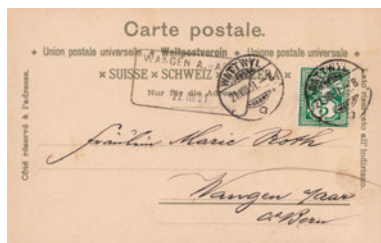 Carte postale.
Union postale universelle. Weltpostverein Unione postale universale
SUISSE SCHWEIZ
Nur für die Adresse
WANGEN A.
WATTWYL
Côté réservé à l'adresse.
5
Fräulein Marie Roth
Wangen a/aar
Bern